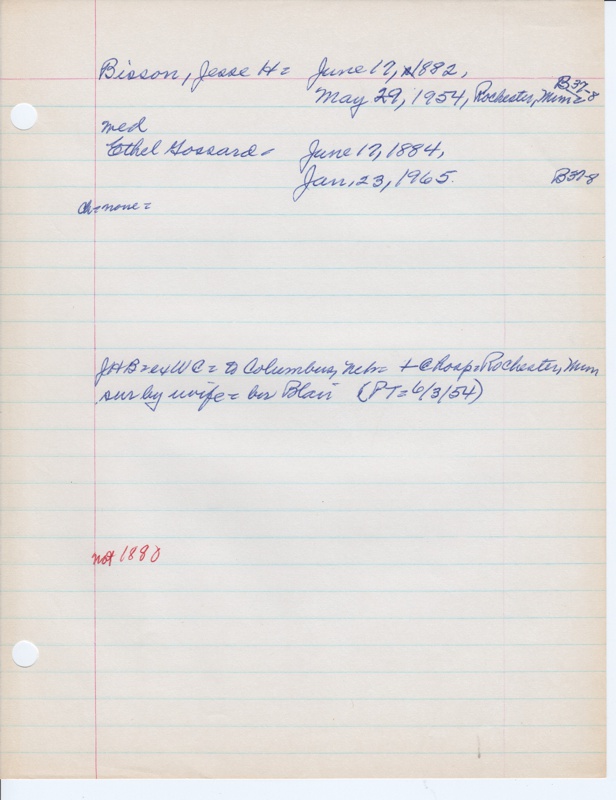 Bisson, Jesse H = June 17, 1882,
May 29, 1954, Rochester, Minn = B37-8
med
Ethel Gossard = June 17, 1884,
Jan, 23, 1965. B37-8
ch = none =
JHB = ex WC = to Columbus, Neb = + @ Hosp = Rochester, Minn
sur by wife = bur Blair (PT = 6/3/54)
not 1880